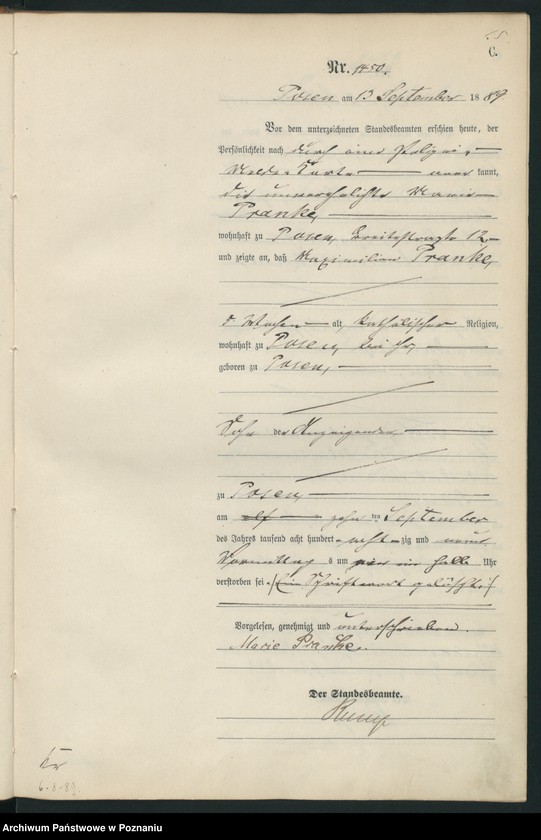 C.
Nr. 1450.
Posen am 13 September 1889
Vor dem unterzeichneten Standesbeamten erschien heute, der
Persönlichkeit nach durch eine Polizei-
Melde-Karte kannt,
die unverehelichte Marie
Pranke,
wohnhaft zu Posen, Breitestraße 12
und zeigte an, daß Maximilian Pranke,
Wochen alt, katholischer Religion,
wohnhaft zu Posen, bei ihr,
geboren zu Posen,
Sohn der Anzeigenden
zu Posen,
am elf zehn ten September
des Jahres tausend acht hundert acht zig und neun
Vormittag s um halb Uhr
verstorben sei. (Ein Schriftwort gelöscht.)
Vorgelesen, genehmigt und unterschrieben.
Marie Pranke.
Der Standesbeamte.
Archiwum Państwowe w Poznaniu